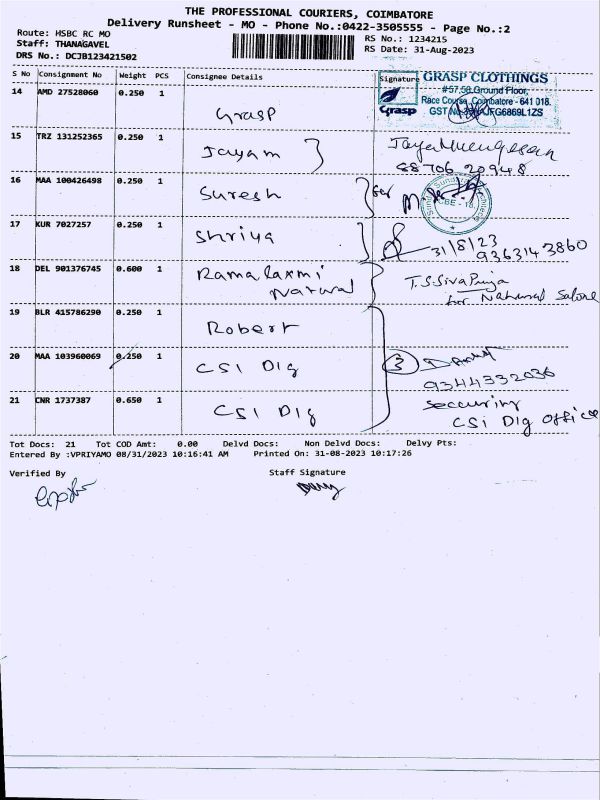 THE PROFESSIONAL COURIERS, COIMBATORE
Delivery Runsheet - MO - Phone No.:0422-3505555 - Page No.:2
Route: HSBC RC MO
RS No.: 1234215
Staff: THANAGAVEL
RS Date: 31-Aug-2023
DRS No.: DCJB123421502
S No Consignment No Weight PCS Consignee Details Signature
GRASP CLOTHINGS
#57,58 Ground Floor,
Race Course, Coimbatore - 641 018.
Grasp
14 AMD 27528060 0.250 1 Grasp
15 TRZ 131252365 0.250 1 Jayam
88706 20948
16 MAA 100426498 0.250 1 Suresh for
CBE - 18.
17 KUR 7027257 0.250 1 Shriya 31/8/23
9363143860
18 DEL 901376745 0.600 1 Ramalaxmi Natural T.S.Siva Priya
for Natural Salone
19 BLR 415786290 0.250 1 Robert
20 MAA 103960069 0.250 1 CSI Dig 3
9344332036
21 CNR 1737387 0.650 1 CSI Dig Seccuring
CSI Dig office
Tot Docs: 21 Tot COD Amt: 0.00 Delvd Docs: Non Delvd Docs: Delvy Pts:
Entered By :VPRIYAMO 08/31/2023 10:16:41 AM Printed On: 31-08-2023 10:17:26
Verified By Staff Signature